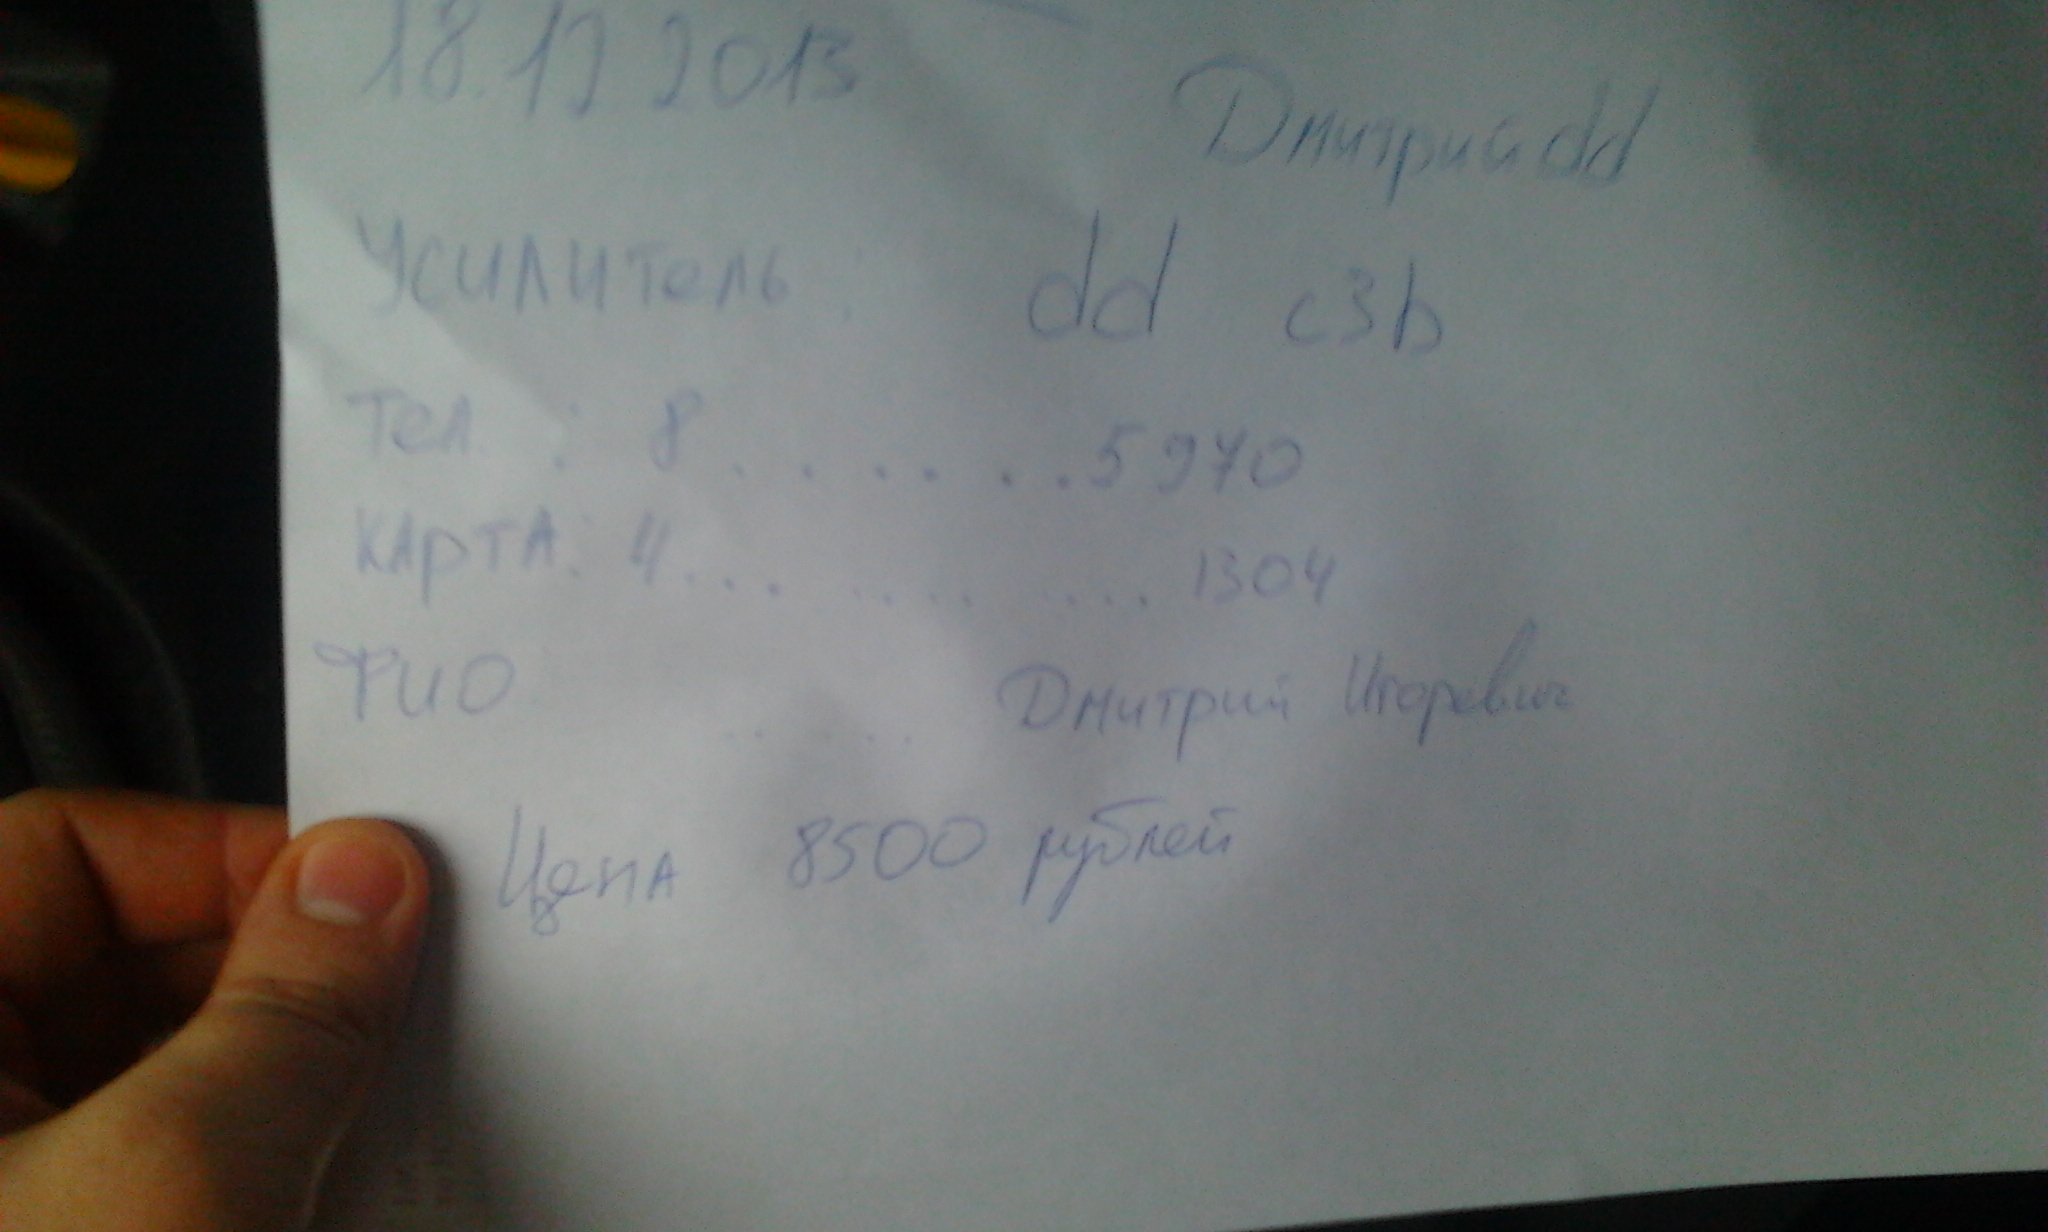 18.12 2013
Дмитрий dd
Усилитель : dd c3b
Тел : 8.......5970
КАРТА: 4... .... ....1304
ФИО ...... Дмитрий Игоревич
Цена 8500 рублей